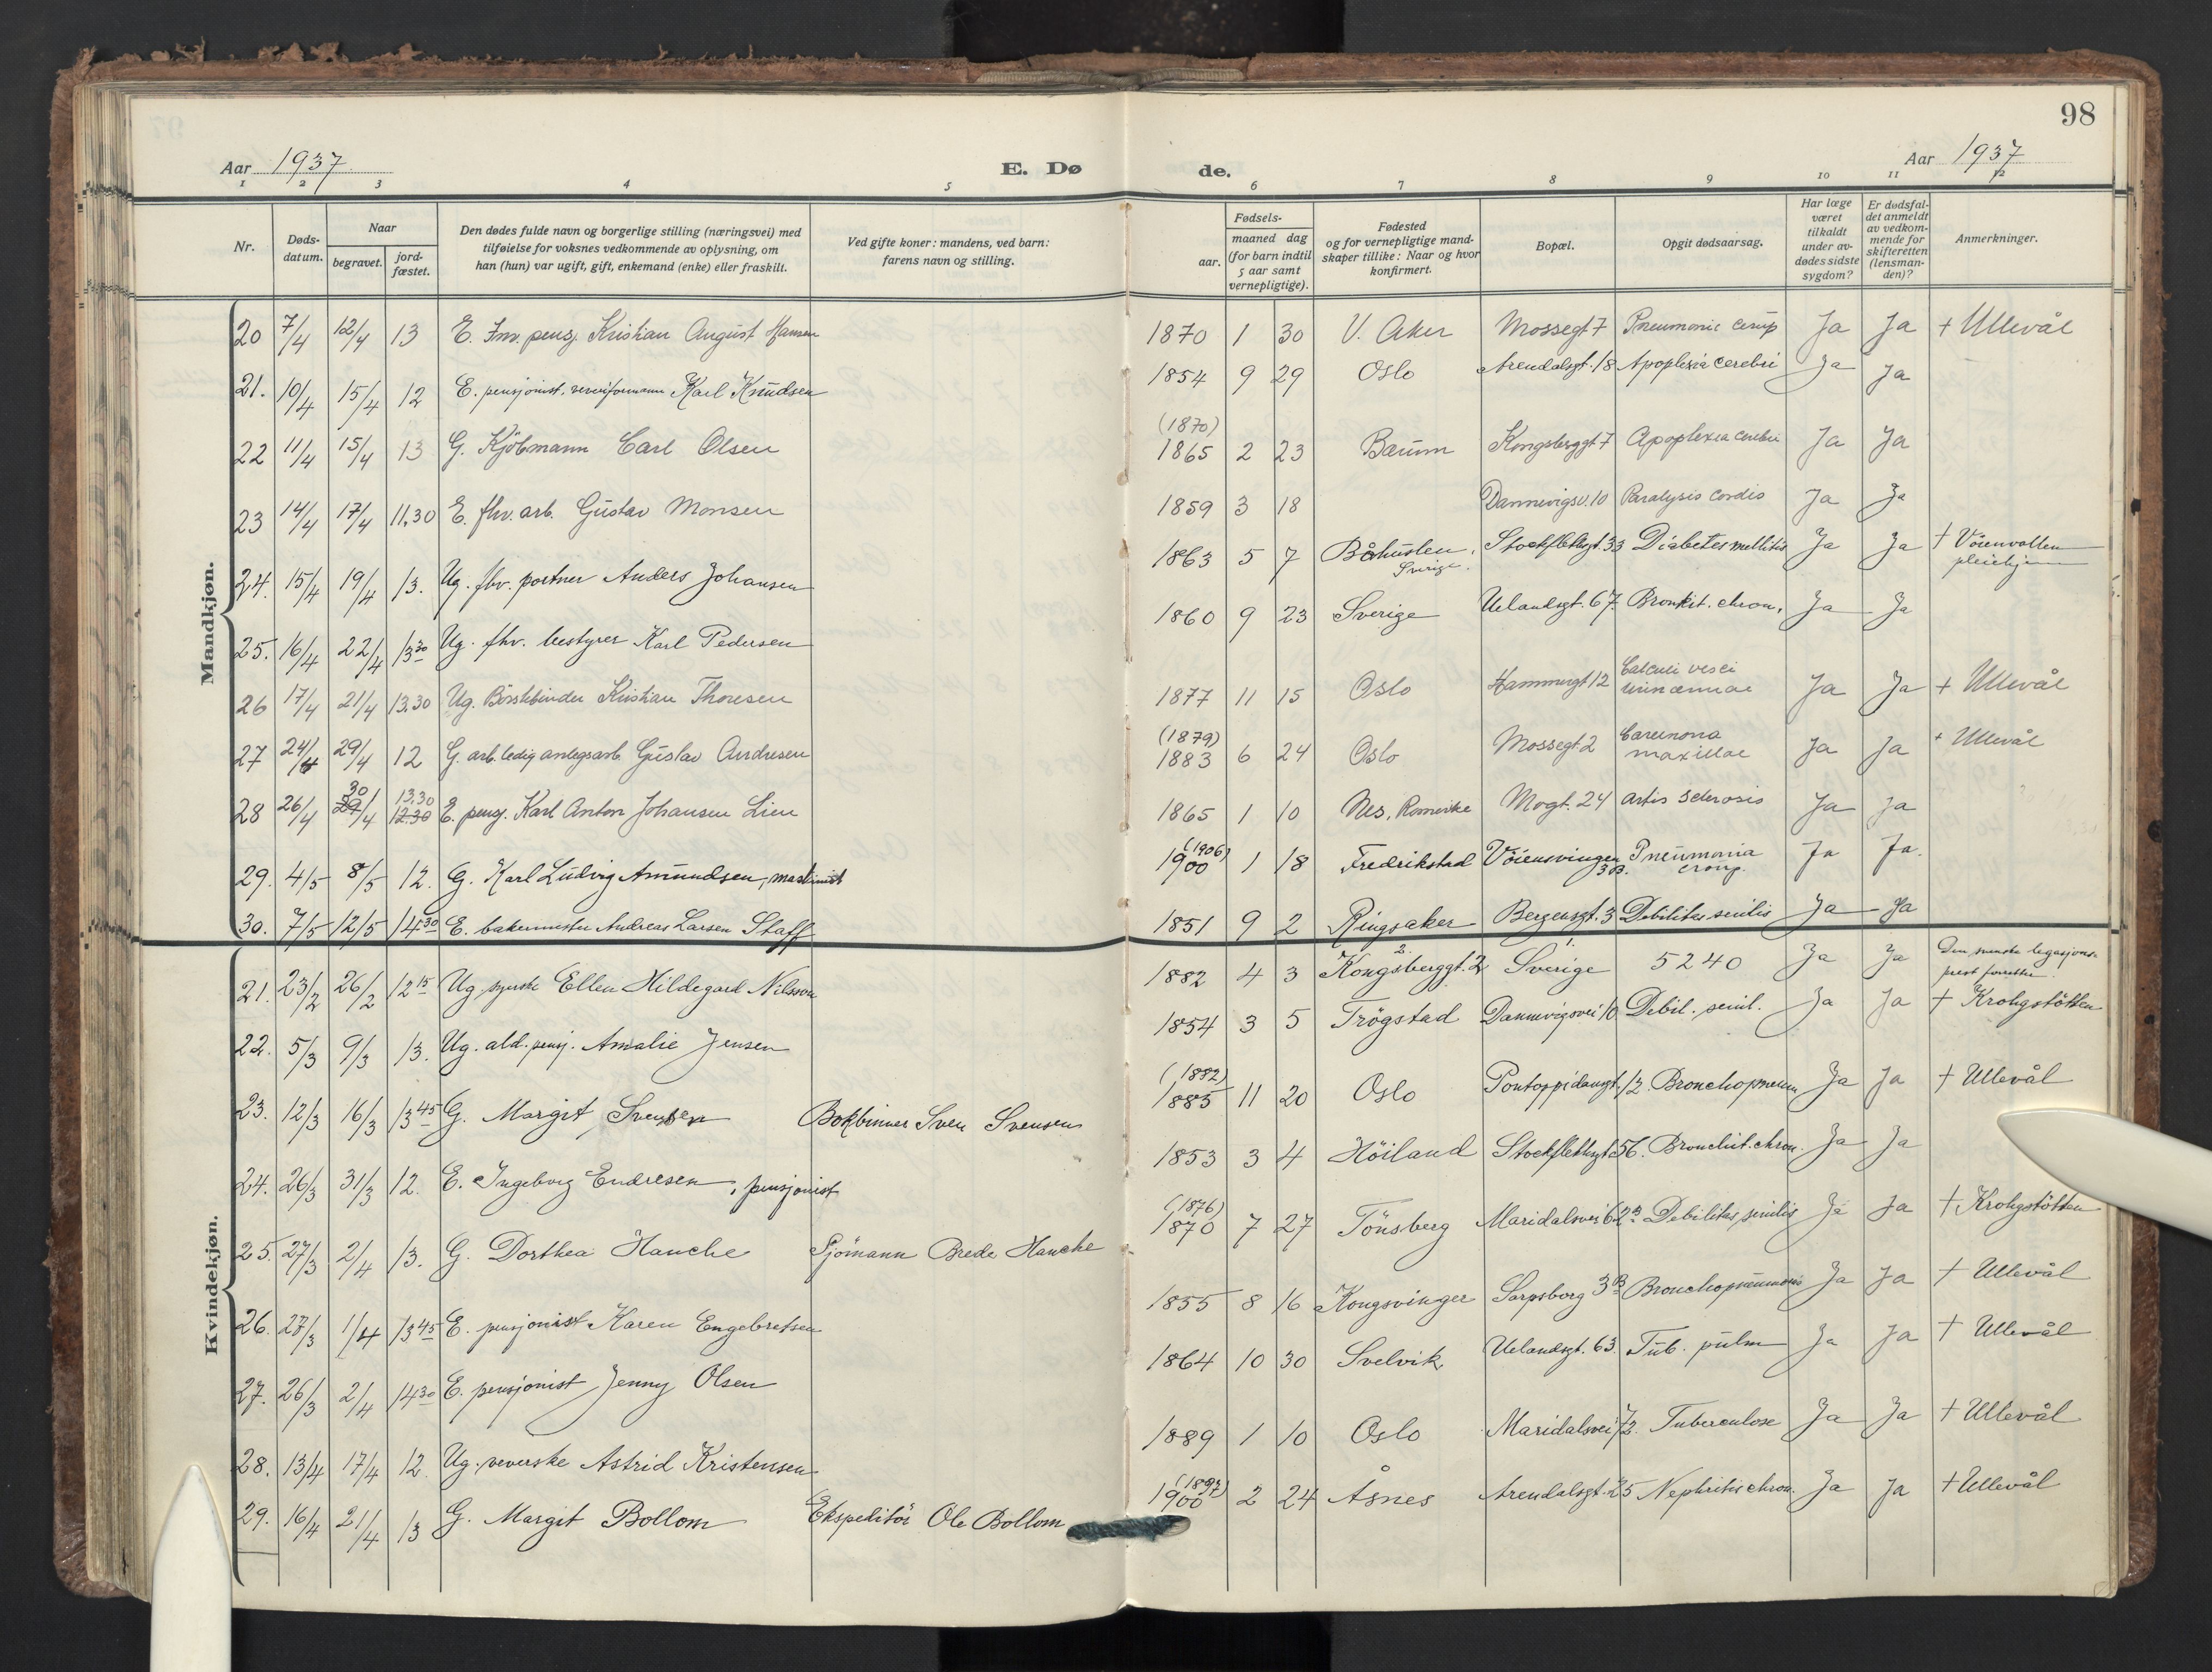 98
Aar 1937 E. Dø de. Aar 1937
1 2 3 4 5 6 7 8 9 10 11 12
Nr.
Døds-
datum.
Naar
begravet.
jord-
fæstet.
Den dødes fulde navn og borgerlige stilling (næringsvei) med
tilføielse for voksnes vedkommende av oplysning, om
han (hun) var ugift, gift, enkemand (enke) eller fraskilt.
Ved gifte koner: mandens, ved barn:
farens navn og stilling.
Fødsels-
aar.
maaned dag
(for barn indtil
5 aar samt
vernepligtige).
Fødested
og for vernepligtige mand-
skaper tillike: Naar og hvor
konfirmert.
Bopæl.
Opgit dødsaarsag.
Har læge
været
tilkaldt
under av-
dødes sidste
sygdom?
Er dødsfal-
det anmeldt
av vedkom-
mende for
skifteretten
(lensman-
den)?
Anmerkninger.
Mandkjøn.
20 7/4 12/4 13 E. Inv. pensj. Kristian August Hansen 1870 1 30 V. Aker Mossegt 7 Pneumonic croup Ja Ja + Ullevål
21. 10/4 15/4 12 E. pensjonist, Karl Knudsen 1854 9 29 Oslo Arendalsgt. 18 Apoplexia cerebri Ja Ja
22 11/4 15/4 13 G. Kjöbmann Carl Olsen (1870) 1865 2 23 Bærum Kongsberggt 7 Apoplexia cerebri Ja Ja
23 14/4 17/4 11,30 E. fhv. arb. Gustav Monsen 1859 3 18 Dannevigsv. 10 Paralysis cordis Ja Ja
24. 15/4 19/4 13. Ug. fhv. portner Anders Johansen 1863 5 7 Båhuslen, Sverige. Stockflethsgt. 33 Diabetes mellitis Ja Ja + Vöienvollen pleiehjem
25. 16/4 22/4 13 30 Ug. fhv. bestyrer Karl Pedersen 1860 9 23 Sverige Uelandsgt. 67. Bronkit. chron. Ja Ja
26 17/4 21/4 13,30 Ug. Börstebinder Kristian Thoresen 1877 11 15 Oslo Hammergt 12 Calculi vesci Ja Ja + Ullevål
27 24/4 29/4 12 G. arb. ledig anlegsarb. Gustav Andresen (1879) 1883 6 24 Oslo Mossegt 2 Carcinoma maxillae Ja Ja + Ullevål
28 26/4 30 29/4 13,30 12.30 E. pensj. Karl Anton Johansen Lien 1865 1 10 Nes, Romerike Mogt. 24 Artis sclerosis Ja Ja
29. 4/5 8/5 12. G. Karl Ludvig Amundsen, maskinist (1906) 1900 1 18 Fredrikstad Vöiensvingen 3B. Pneumonia croup. Ja Ja.
30. 7/5 12/5 14 30 E. bakermester Andreas Larsen Staff 1851 9 2 Ringsaker Bergensgt. 3 Debilitas senilis Ja Ja
Kvindekjøn.
21. 23/2 26/2 12 15 Ug. syerske Ellen Hildegard Nilsson 1882 4 3 2. Kongsberggt. 2 1. Sverige 5240 Ja Ja Den svenske legasjons- prest forrettet.
22. 5/3 9/3 13. Ug. ald. pensj. Amalie Jensen 1854 3 5 Trögstad Dannevigsvei 10 Debil. senil. Ja Ja + Krohgstötten
23. 12/3 16/3 13 45 G. Margit Svensen Bokbinner Sven Svensen (1882) 1885 11 20 Oslo Pontoppidansgt. 12. Bronchopneum. Ja Ja + Ullevål
24. 26/3 31/3 12. E. Ingeborg Endresen, pensjonist 1853 3 4 Höiland Stockflethsgt 56. Bronchit. chron. Ja Ja
25. 27/3 2/4 13. G. Dorthea Hanche Sjömann Brede Hanche (1876) 1870 7 27 Tönsberg Maridalsvei 62 B Debilitas senilis Ja Ja + Krohgstötten
26. 27/3 1/4 13 45 E. pensjonist Karen Engebretsen 1855 8 16 Kongsvinger Sarpsborg 3 B Bronchopneumonis Ja Ja + Ullevål
27. 26/3 2/4 14 30 E. pensjonist Jenny Olsen 1864 10 30 Svelvik Uelandsgt. 63. Tub. pulm Ja Ja + Ullevål
28. 13/4 17/4 12. Ug. veverske Astrid Kristensen 1889 1 10 Oslo Maridalsvei 72. Tuberculose Ja Ja + Ullevål
29. 16/4 21/4 13 G. Margit Bollom Ekspeditör Ole Bollom (1897) 1900 2 24 Åsnes Arendalsgt. 25 Nephritis chron. Ja Ja + Ullevål